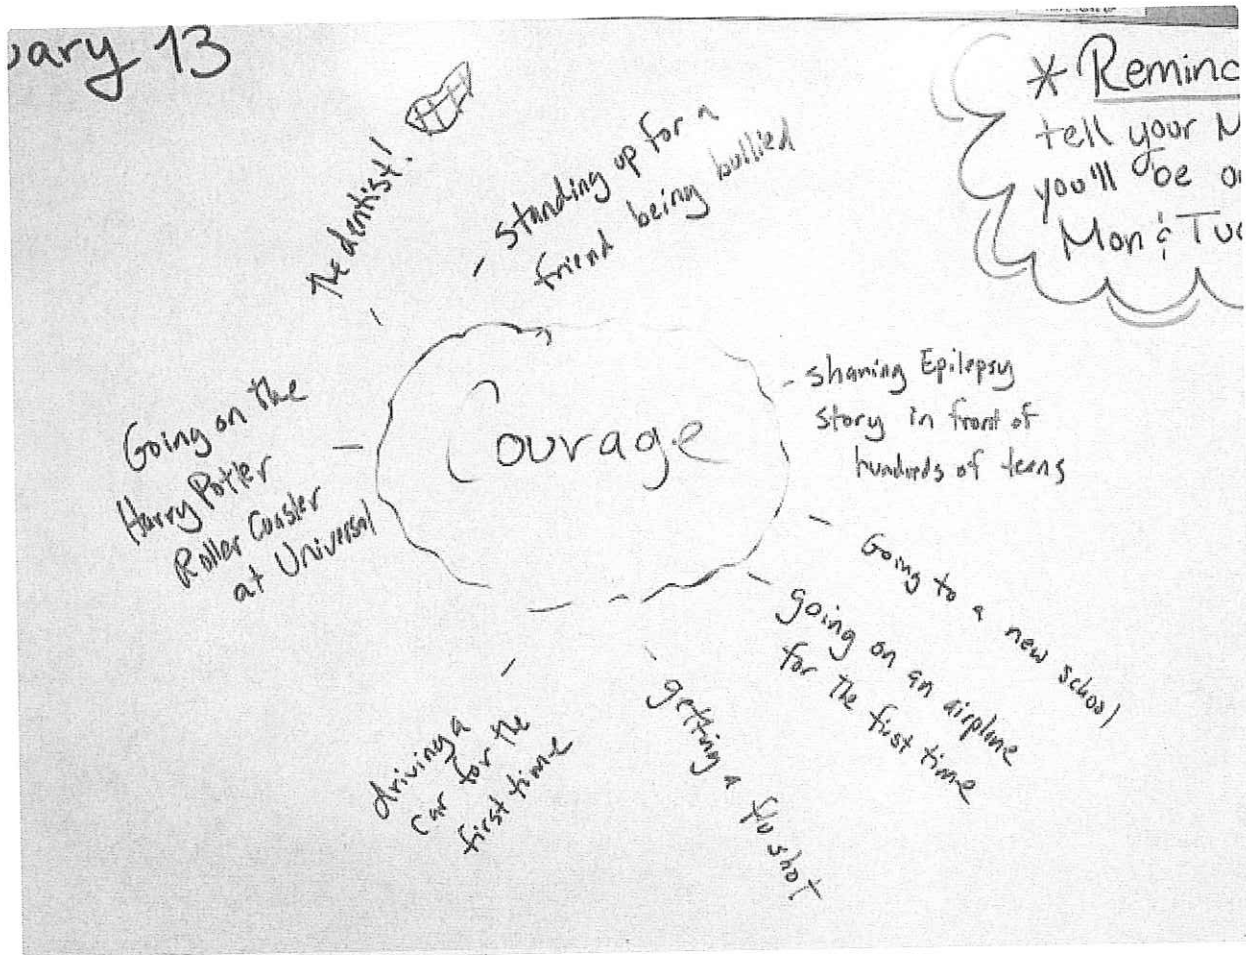 uary 13
* Remind
tell your M
you'll be o
Mon & Tu
The dentist!
- standing up for a
friend being bullied
- sharing Epilepsy
story in front of
hundreds of teens
- Going to a new school
- going on an airplane
for the first time
- getting a flu shot
- driving a
car for the
first time
- Going on the
Harry Potter
Roller Coaster
at Universal
Courage